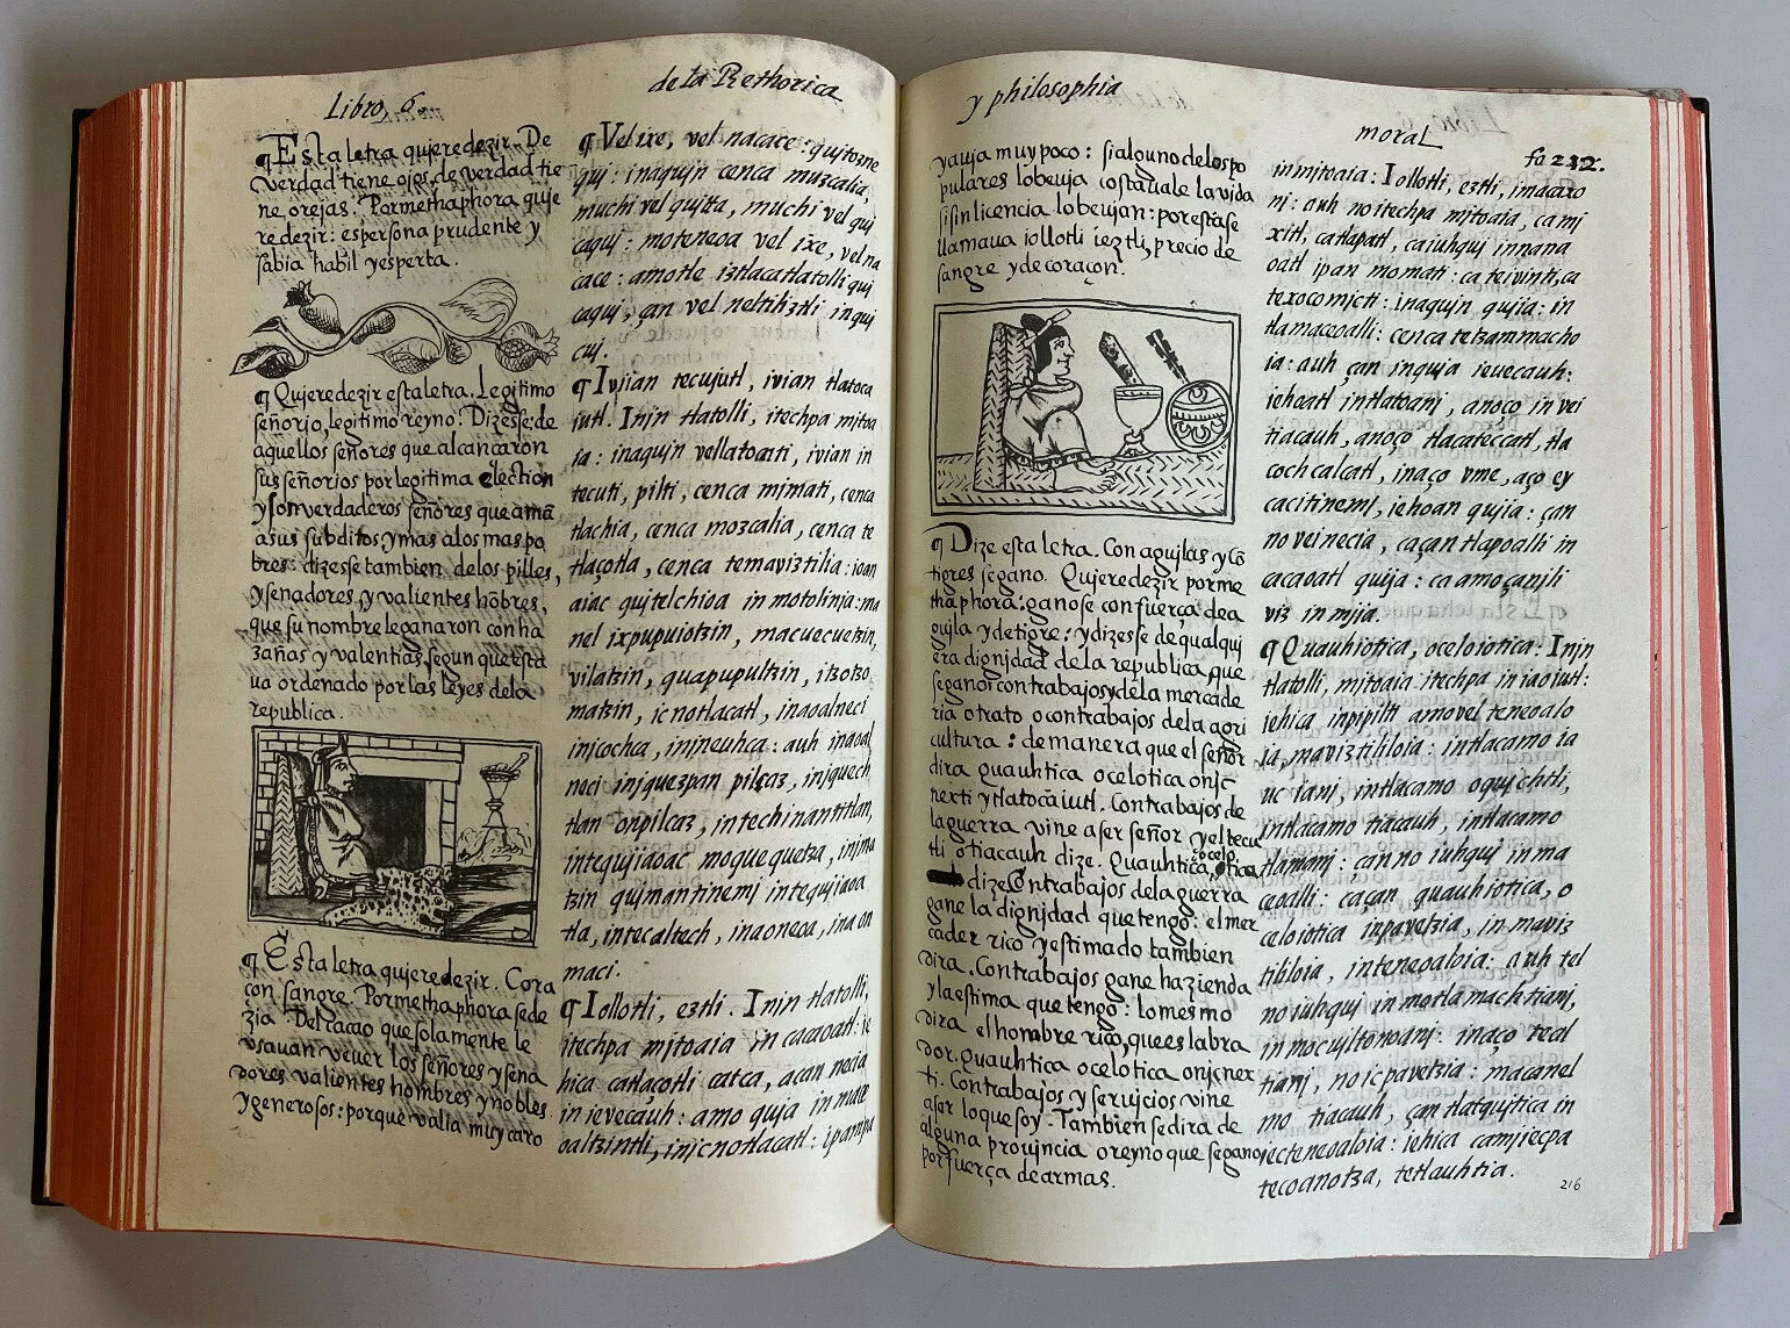 Libro, 6.
de la Rethorica
¶ Esta letra qujere dezir. De
verdad tiene ojos, de verdad tie
ne orejas. Por methaphora quje
re dezir: es persona prudente y
sabia habil y esperta.
¶ Qujere dezir esta letra. Legitimo
señorio, legitimo reyno. Dizesse: de
aquellos señores que alcançaron
sus señorios por legitima election
y son verdaderos señores que amã
a sus subditos y mas a los mas po
bres: dizesse tambien de los pilles,
y senadores, y valientes hõbres,
que su nombre le ganaron con ha
zañas y valentias, segun que esta
ua ordenado por las leyes de la
republica.
¶ Esta letra qujere dezir. Cora
con sangre. Por methaphora se de
zia. Del cacao que solamente le
vsauan veuer los señores y sena
dores valientes hombres y nobles
y generosos: porque valia muy caro
¶ Vel ixe, vel nacace: qujtozne
quj: inaqujn cenca muzcalia,
muchi vel qujtta, muchi vel quj
caquj: moteneoa vel ixe, vel na
cace: amo tle iztlacatlatolli quj
caquj, çan vel neltiliztli inquj
cuj.
¶ Ivjian tecujutl, ivian tlatoca
iutl. Injn tlatolli, itechpa mitoa
ia: inaqujn vellatoani, ivian in
tecuti, pilti, cenca mimati, cenca
tlachia, cenca mozcalia, cenca te
tlaçotla, cenca temaviztilia: ioan
aiac qujtelchioa in motolinja: ma
nel ixpupuiotzin, macuecuetzin,
vilatzin, quapupultzin, itzotzo
matzin, icnotlacatl, inaoalneci
injcochca, injneuhca: auh inaoal
neci injquezpan pilcaz, injquech
tlan onpilcaz, intechinantitlan,
intequjiaoac moquequetza, injma
tzin qujmantinemj intequjiaoa
tla, intecaltech, inaoneoa, inaon
maci.
¶ Iollotli, eztli. Injn tlatolli,
itechpa mjtoaia in cacaoatl: ie
hica catlaçotli catca, acan necia
in ievecauh: amo quja in mace
oaltzintli, injcnotlacatl: ipampa
y philosophia
moral
fo 232.
y auja muy poco: si alguno de los po
pulares lo beuja costauale la vida
si sin licencia lo beujan: por esta se
llamaua iollotli ieztli, precio de
sangre y de coraçon.
¶ Dize esta letra. Con agujlas y cõ
tigres se gano. Qujere dezir por me
thaphora: ganose con fuerça de a
gujla y de tigre: y dizesse de qualquj
era dignjdad de la republica que
se gano: con trabajos y de la mercade
ria o trato o con trabajos de la agri
cultura: de manera que el señor
dira quauhtica ocelotica onjc
nexti y tlatocaiutl. Con trabajos de
la guerra vine a ser señor y el tecu
tli o tiacauh dize. Quauhtica, ocelo,
tica,
dize Con trabajos de la guerra
gane la dignjdad que tengo: el mer
cader rico y estimado tambien
dira. Con trabajos gane hazienda
y la estima que tengo: lo mesmo
dira el hombre rico, que es labra
dor. quauhtica ocelotica onjcnex
ti. Con trabajos y serujcios vine
a ser lo que soy. Tambien se dira de
alguna proujncia o reyno que se gano
por fuerça de armas.
in mjtoaia: Iollotli, eztli, imacaxo
nj: auh no itechpa mjtoaia, ca mj
xitl, ca tlapatl, ca iuhquj in nana
oatl ipan momati: ca teivinti, ca
texocomicti: inaqujn qujia: in
tlamaceoalli: cenca tetzammacho
ia: auh çan inquja ievecauh:
iehoatl in tlatoanj, anoço in vei
tiacauh, anoço tlacateccatl, tla
cochcalcatl, inaço vme, aço ey
cacitinemj, iehoan qujia: çan
no vei necia, ca çan tlapoalli in
cacaoatl quija: ca amo çanjli
viz in mjia.
¶ Quauhiotica, oceloiotica: Injn
tlatolli, mjtoaia itechpa in iaoiutl:
iehica inpipilti amo vel teneoalo
ia, maviztililoia: intlacamo ia
uc ianj, intlacamo oqujchtli,
intlacamo tiacauh, intlacamo
tlamanj: çan no iuhquj in ma
ceoalli: ca çan quauhiotica, o
celoiotica inpavetzia, in maviz
tililoia, inteneoaloia: auh tel
no iuhquj in motlamachtianj,
in mocujltonoanj: inaço teal
tianj, no icpavetzia: macanel
mo tiacauh, çan tlatqujtica in
iecteneoaloia: iehica camjiecpa
tecoanotza, tetlauhtia.
216